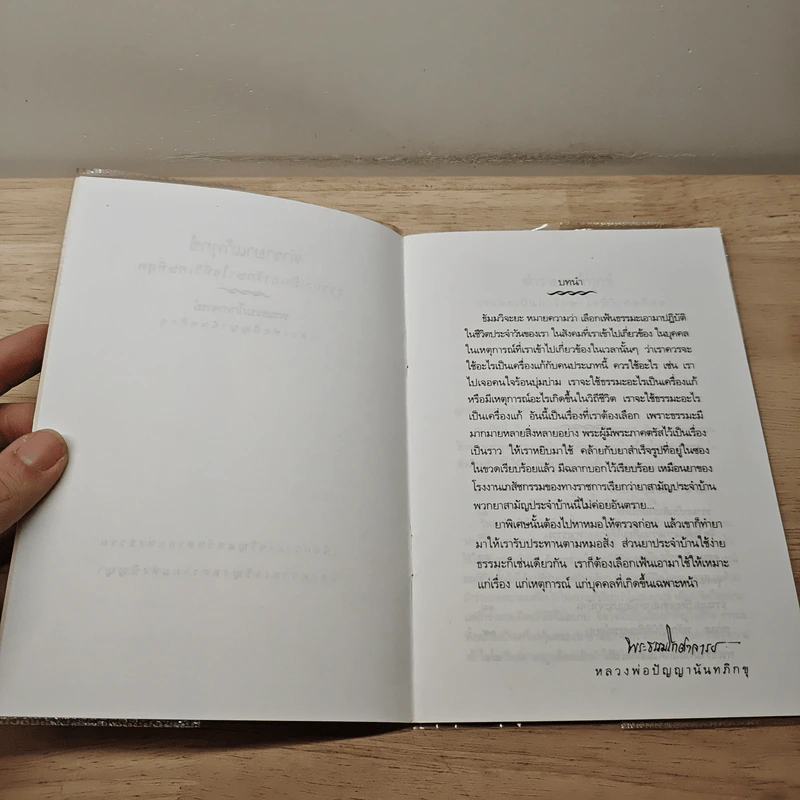 บทนำ
ธัมมวิจะยะ หมายความว่า เลือกเฟ้นธรรมะเอามาปฏิบัติ
ในชีวิตประจำวันของเรา ในสังคมที่เราเข้าไปเกี่ยวข้อง ในบุคคล
ในเหตุการณ์ที่เราเข้าไปเกี่ยวข้องในเวลานั้นๆ ว่าเราควรจะ
ใช้อะไรเป็นเครื่องแก้กับคนประเภทนี้ ควรใช้อะไร เช่น เรา
ไปเจอคนใจร้อนบุ่มบ่าม เราจะใช้ธรรมะอะไรเป็นเครื่องแก้
หรือมีเหตุการณ์อะไรเกิดขึ้นในวิถีชีวิต เราจะใช้ธรรมะอะไร
เป็นเครื่องแก้ อันนี้เป็นเรื่องที่เราต้องเลือก เพราะธรรมะมี
มากมายหลายสิ่งหลายอย่าง พระผู้มีพระภาคตรัสไว้เป็นเรื่อง
เป็นราว ให้เราหยิบมาใช้ คล้ายกับยาสำเร็จรูปที่อยู่ในซอง
ในขวดเรียบร้อยแล้ว มีฉลากบอกไว้เรียบร้อย เหมือนยาของ
โรงงานเภสัชกรรมของทางราชการเรียกว่ายาสามัญประจำบ้าน
พวกยาสามัญประจำบ้านนี้ไม่ค่อยอันตราย...
ยาพิเศษนั้นต้องไปหาหมอให้ตรวจก่อน แล้วเขาก็ทำยา
มาให้เรารับประทานตามหมอสั่ง ส่วนยาประจำบ้านใช้ง่าย
ธรรมะก็เช่นเดียวกัน เราก็ต้องเลือกเฟ้นเอามาใช้ให้เหมาะ
แก่เรื่อง แก่เหตุการณ์ แก่บุคคลที่เกิดขึ้นเฉพาะหน้า
พระธรรมโกศาจารย์
หลวงพ่อปัญญานันทภิกขุ